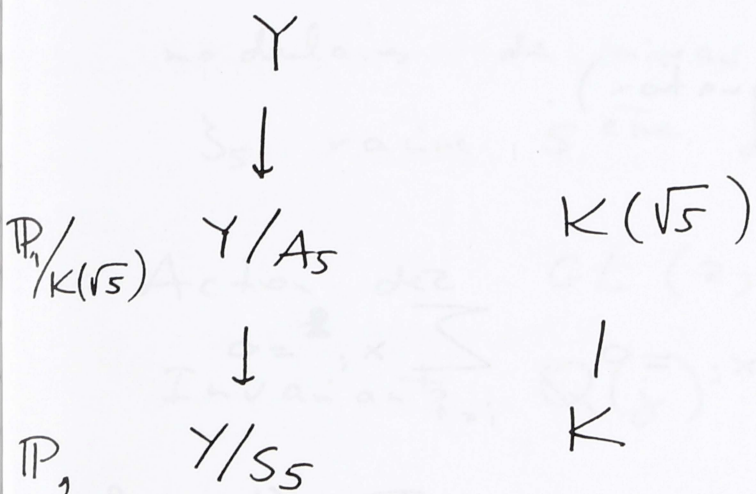 Y
↓
ℙ₁/K(√5) Y/A₅ K(√5)
↓ |
ℙ₁ Y/S₅ K